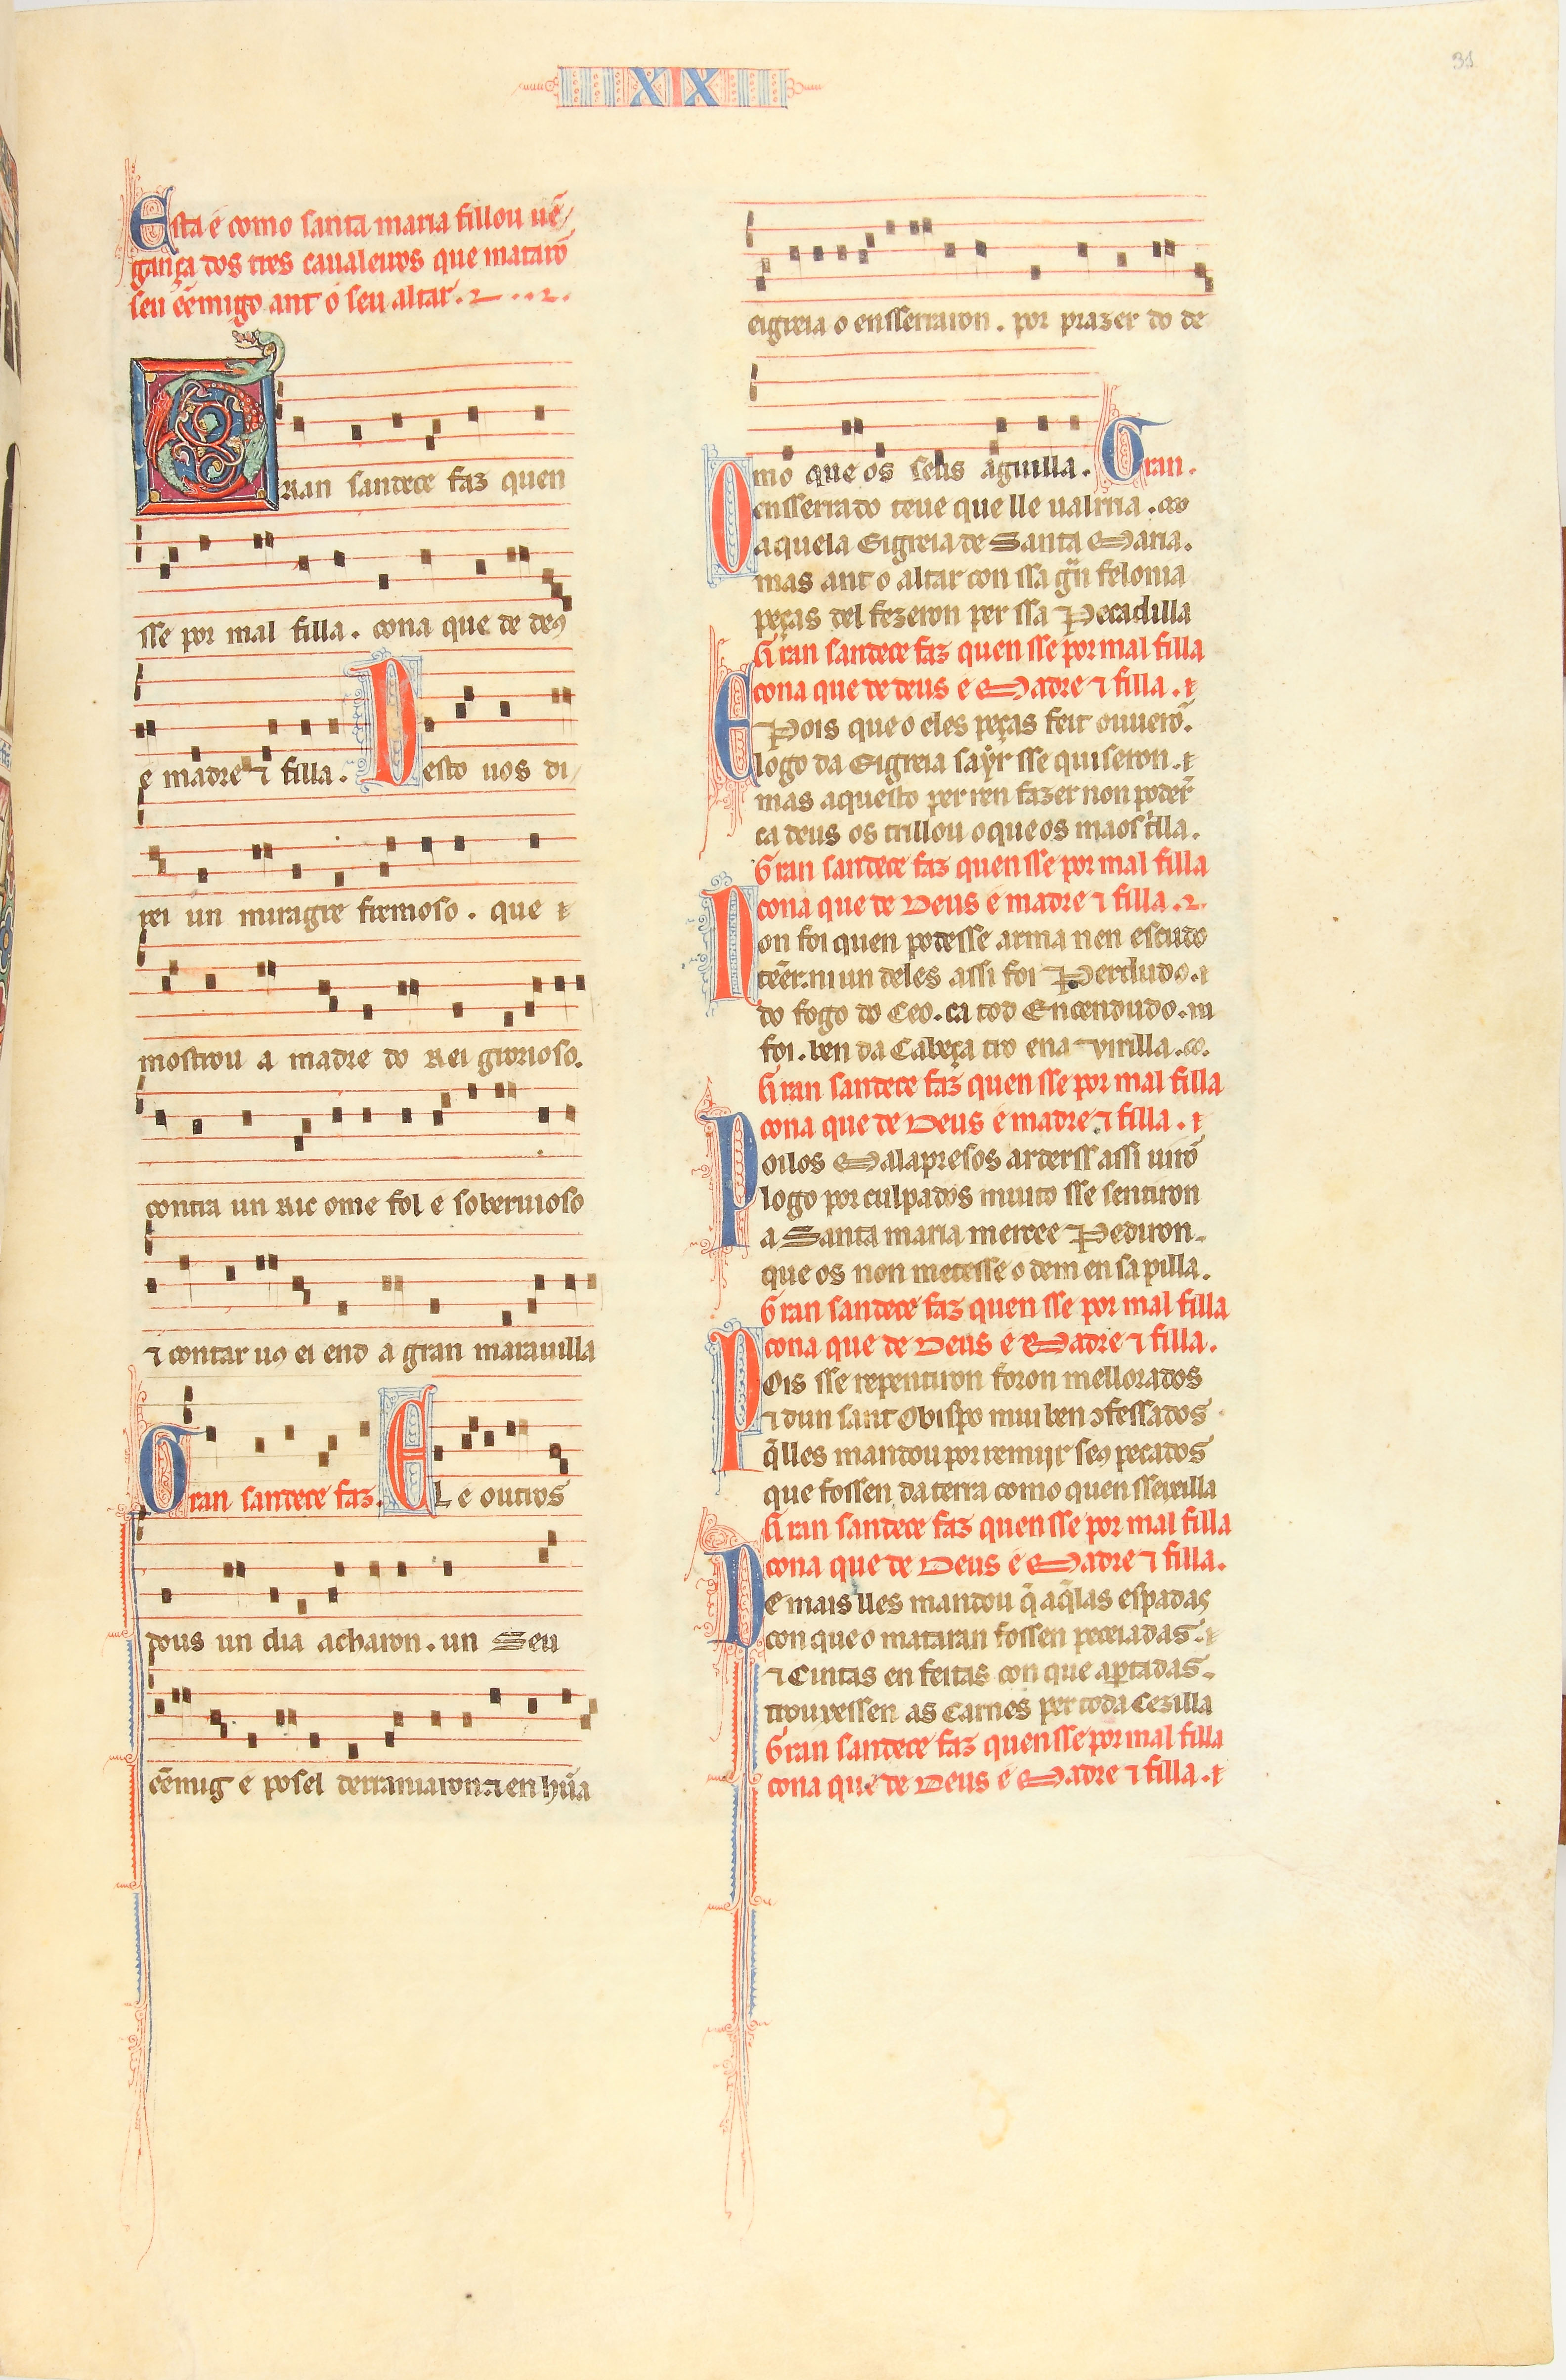 XIX
31
Esta é como santa maria fillou uẽ
gança dos tres caualeiros que matarõ
seu ẽemigo ant o seu altar.
Gran sandece faz quen
sse por mal filla. cona que de deꝰ
e madre ⁊ filla. Desto uos di
rei un miragre fremoso. que
mostrou a madre do Rei grorioso.
contra un Ric ome fol e soberuioso
⁊ contar uꝰ ei end a gran marauilla
Gran sandece faz. El e outros
dous un dia acharon. un Seu
ẽemig e posel derraniaron. ⁊ en hũa
eigreia o ensserraron. por prazer do de
mo que os seus aguilla. Gran.
Onsserrado teue que lle ualrria.
aquela Eigreia de Santa Maria.
mas ant o altar con ssa grã felonia
peças del fezeron per ssa Pecadilla
Gran sandece faz quen sse por mal filla
cona que de deus e Madre ⁊ filla.
E Pois que o eles peças feit ouuerõ.
logo da Eigreia sayr sse quiseron.
mas aquesto per ren fazer non poder̃
ca deus os trillou o que os maos trilla.
Gran sandece faz quen sse por mal filla
cona que de Deus e madre ⁊ filla.
Non foi quen podesse arma nen escudo
tẽer. niun deles assi foi Perdudo.
do fogo do Ceo. ca tod Encendudo.
foi. ben da Cabeça tro ena Virilla.
Gran sandece faz quen sse por mal filla
cona que de Deus e madre ⁊ filla.
Poilos Malapresos arderss assi uirõ
logo por culpados muito sse sentiron
a Santa maria mercee Pediron.
que os non metesse o dem en sa pilla.
Gran sandece faz quen sse por mal filla
cona que de Deus e Madre ⁊ filla.
Pois sse repentiron foron mellorados
⁊ dun sant Obispo mui ben ɔfessados
q̃lles mandou por remijr seꝰ pecados
que fossen da terra como quen sseixilla
Gran sandece faz quen sse por mal filla
cona que de Deus e Madre ⁊ filla.
De mais lles mandou q̃ aq̃las espadas
con que o mataran fossen peceiadas.
⁊ Cintas en feitas con que apertadas.
trouxessen as Carnes per toda Cezilla
Gran sandece faz quen sse por mal filla
cona que de Deus e Madre ⁊ filla.